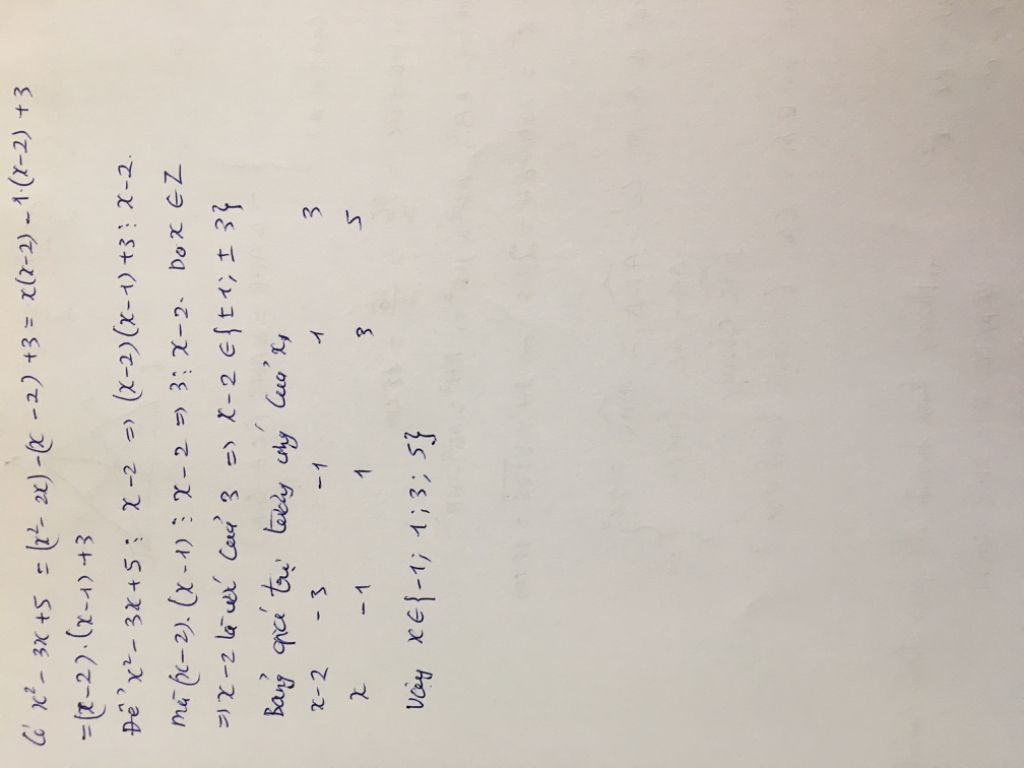 Có x² - 3x + 5 = (x² - 2x) - (x - 2) + 3 = x(x-2) - 1.(x-2) + 3
= (x-2).(x-1) + 3
Để x² - 3x + 5 ⋮ x - 2 => (x-2)(x-1) + 3 ⋮ x - 2.
mà (x-2).(x-1) ⋮ x - 2 => 3 ⋮ x - 2. Do x ∈ Z
=> x - 2 là ước của 3 => x - 2 ∈ {±1; ±3}
Bảng giá trị tương ứng của x,
x-2 -3 -1 1 3
x -1 1 3 5
Vậy x ∈ {-1; 1; 3; 5}